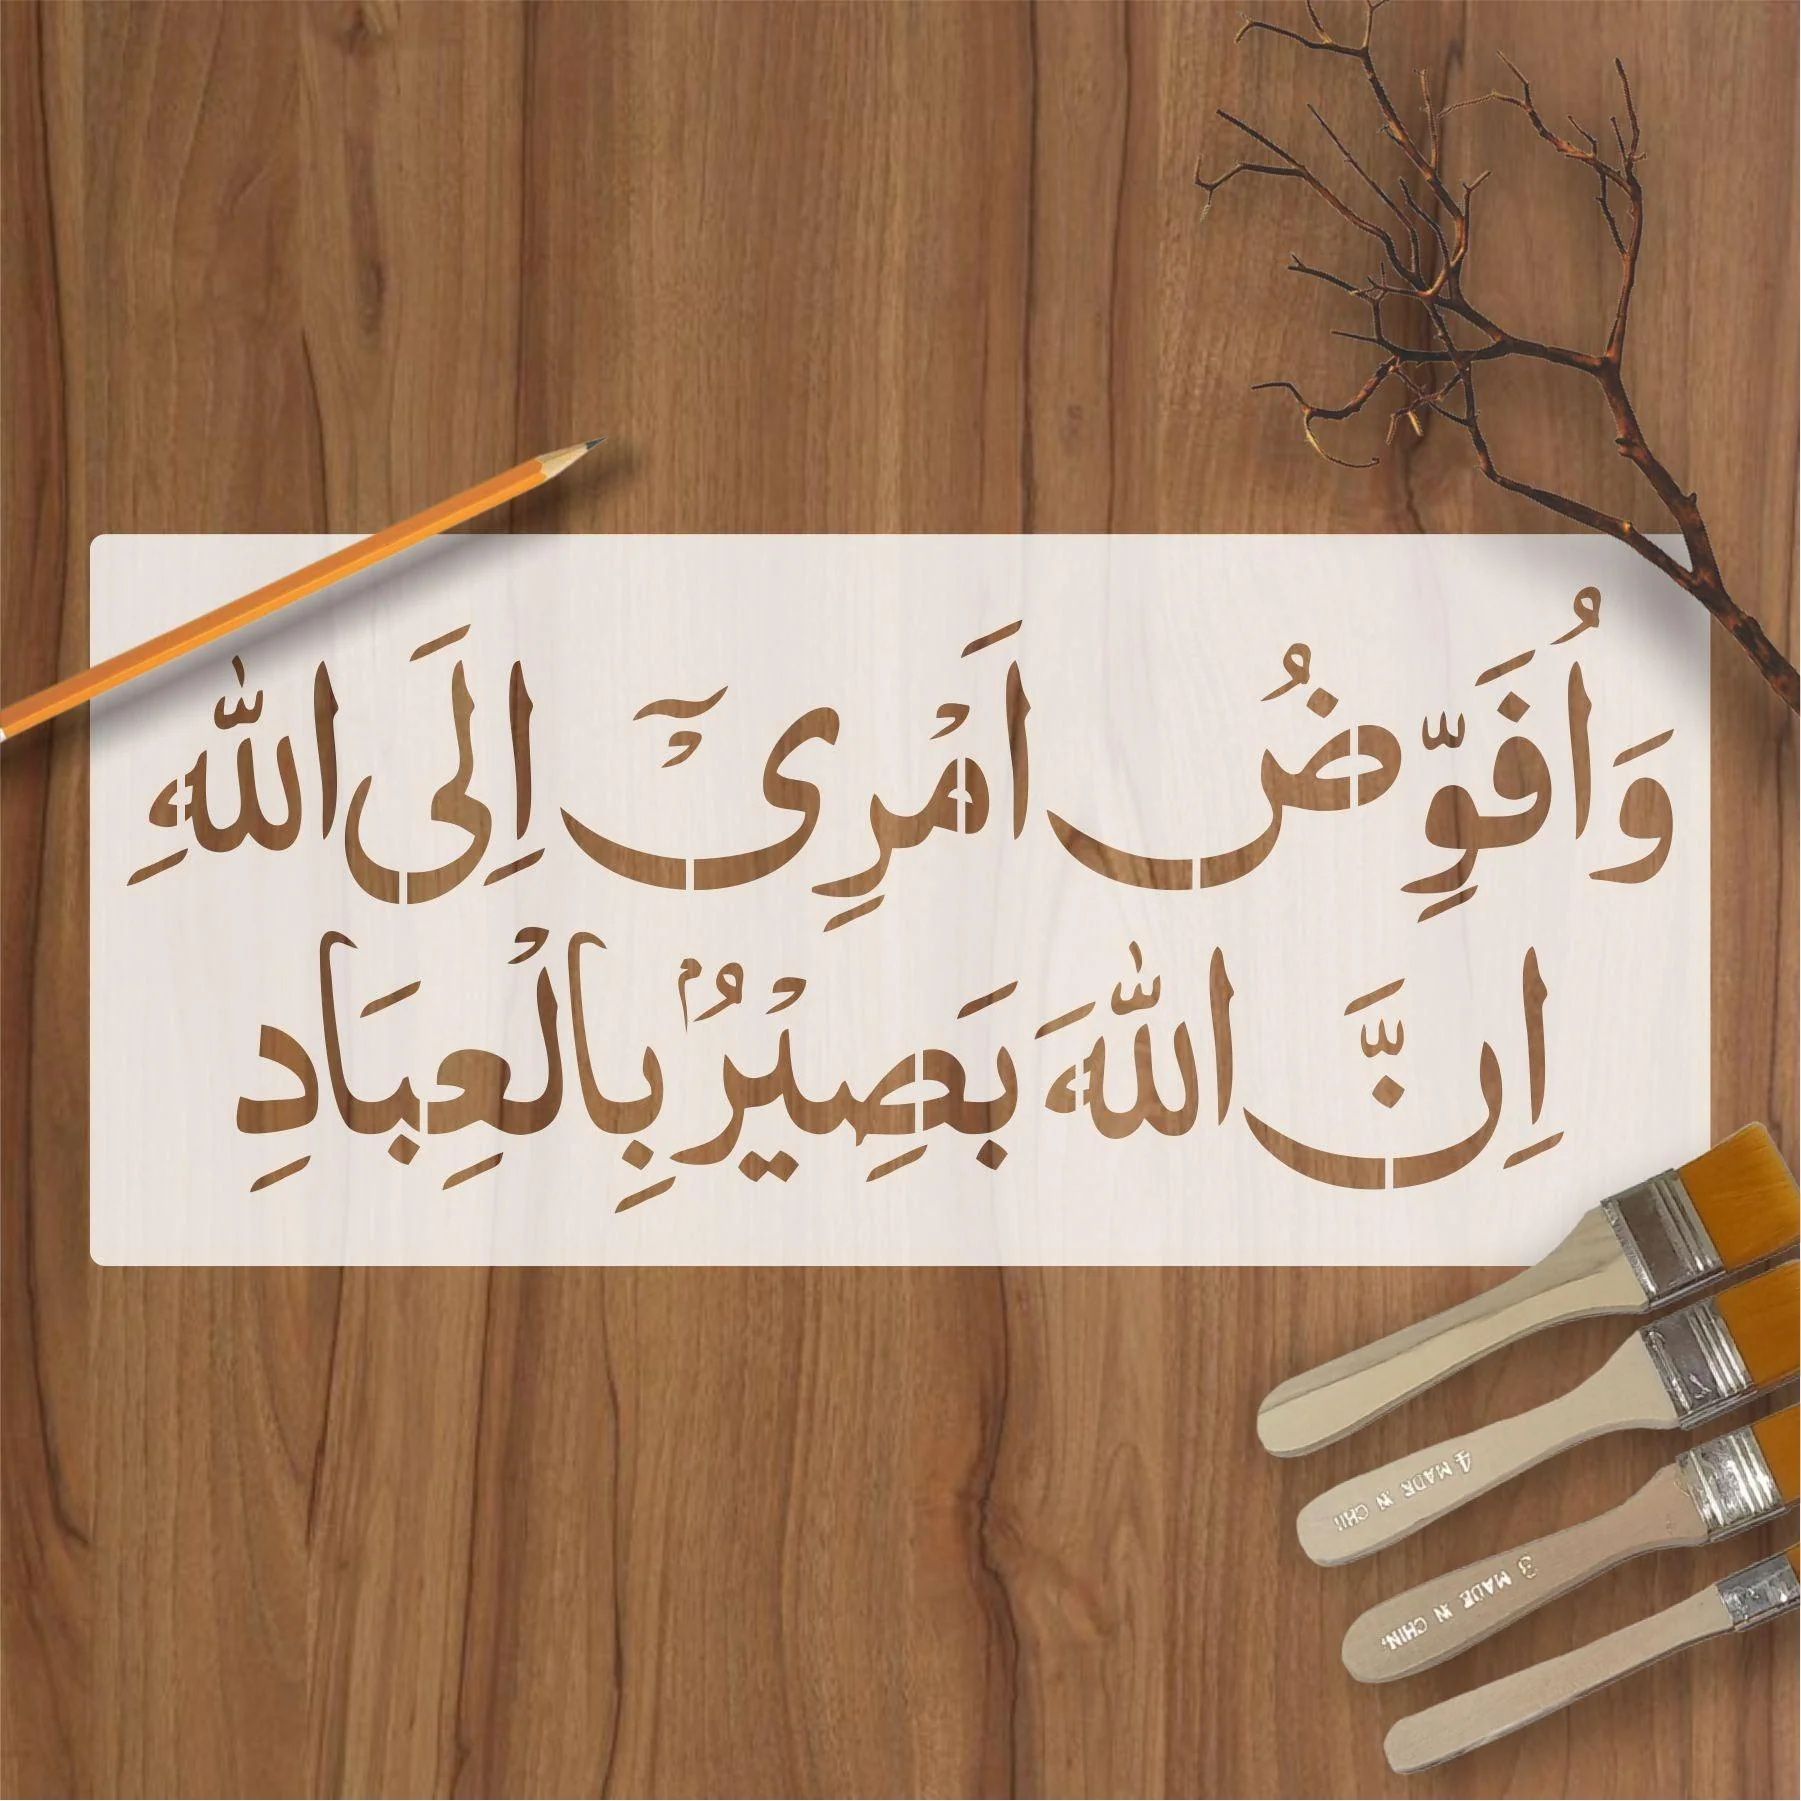 وَاُفَوِّضُ اَمْرِىْٓ اِلَى اللّٰهِ
اِنَّ اللّٰهَ بَصِيْرٌۢ بِالْعِبَادِ
4 MADE IN CHI
3 MADE IN CHIN